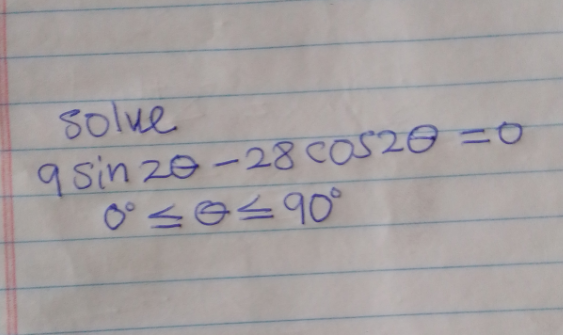 solve
9 sin 2θ - 28 cos 2θ = 0
0° ≤ θ ≤ 90°